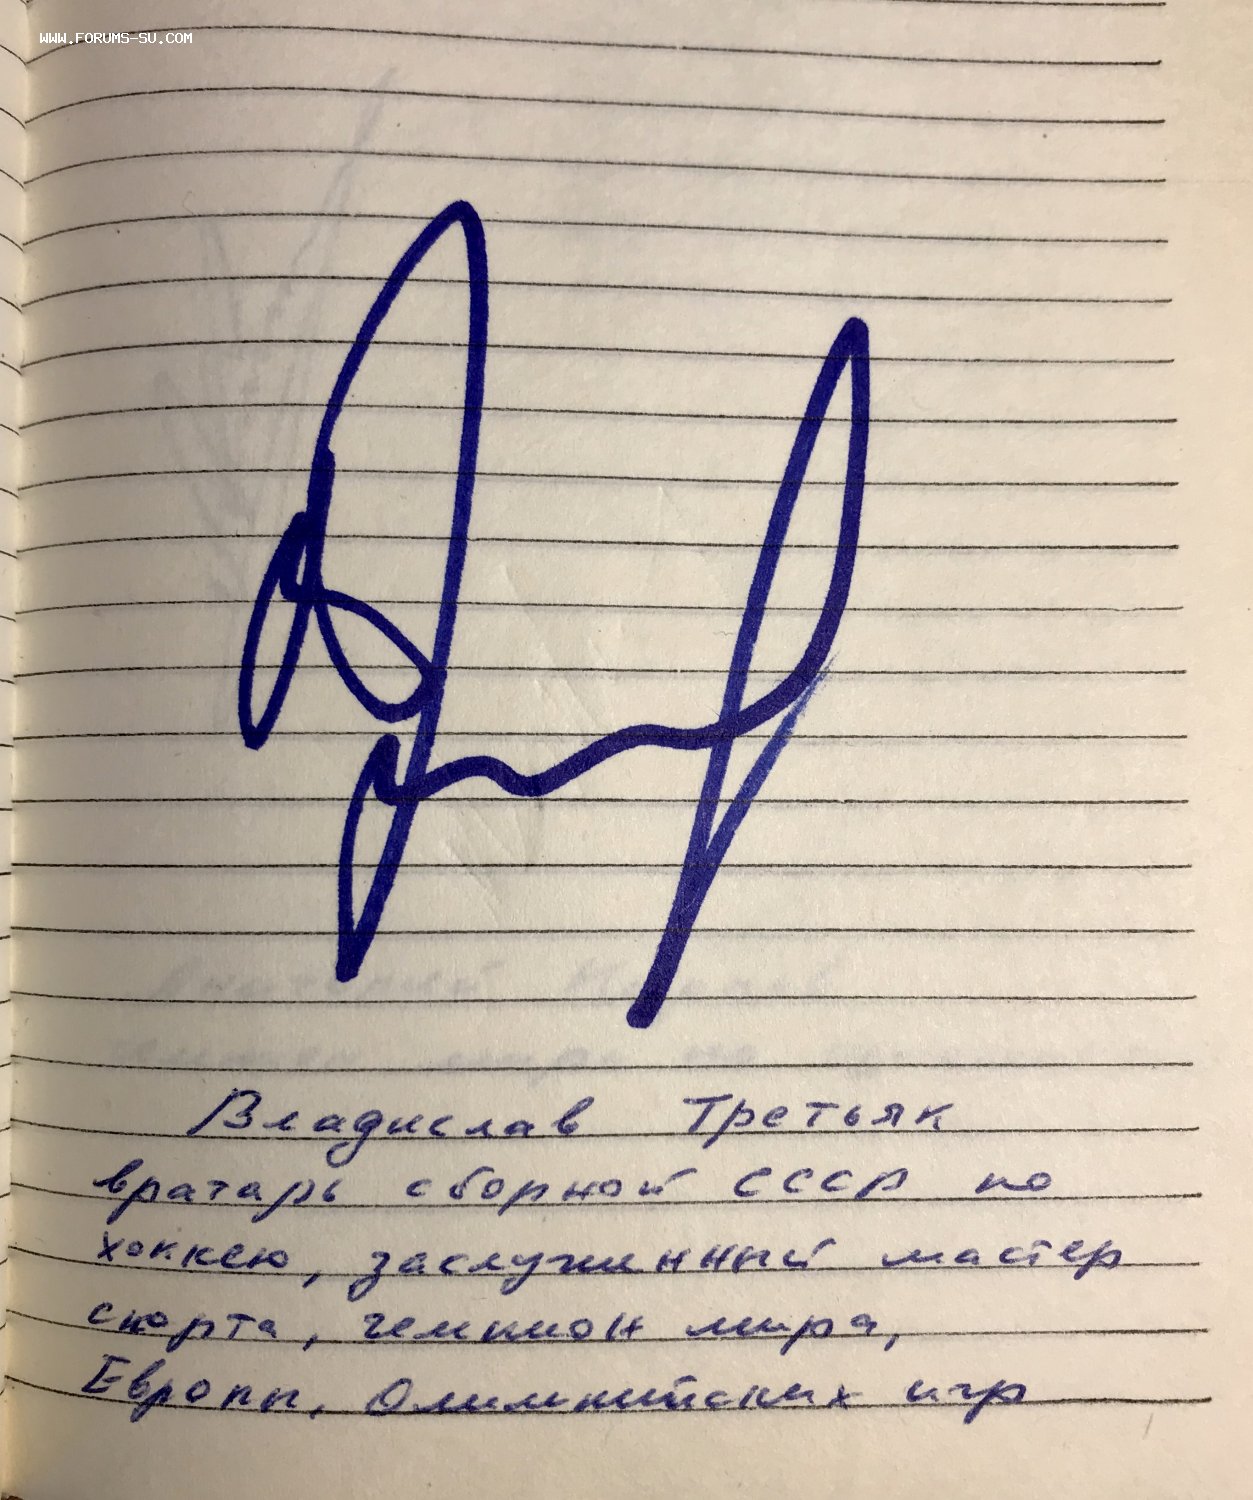 WWW.FORUMS-SU.COM
Владислав Третьяк
вратарь сборной СССР по
хоккею, заслуженный мастер
спорта, чемпион мира,
Европы, Олимпийских игр